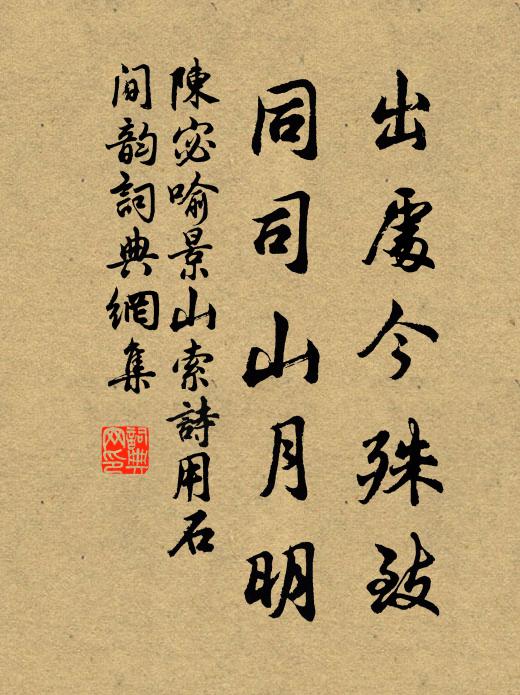 出處今殊致
同司山月明
陳宓喻景山索詩用石
間韵詞典網集
詞典
网印